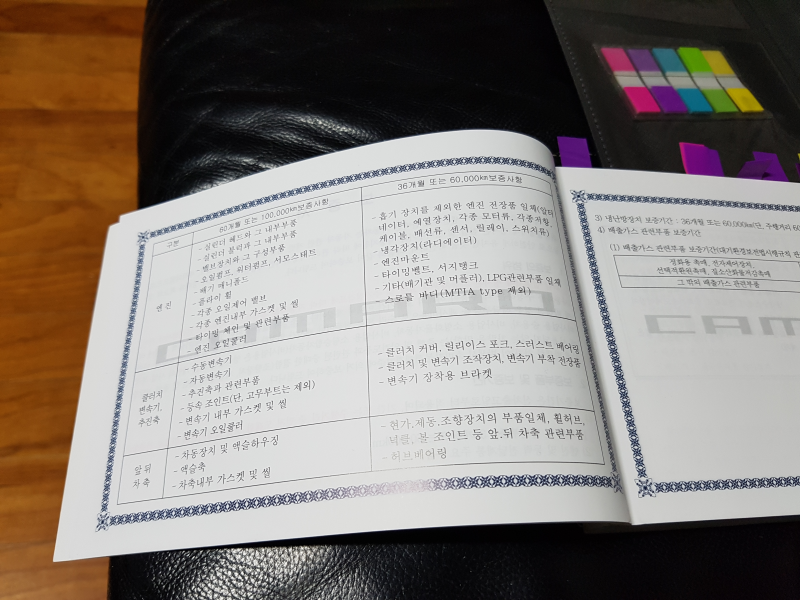 구분
60개월 또는 100,000km보증사항
36개월 또는 60,000km보증사항
엔진
- 실린더 헤드와 그 내부부품
- 실린더 블럭과 그 내부부품
- 벨브장치와 그 구성부품
- 오일펌프, 워터펌프, 서모스태트
- 배기 매니폴드
- 플라이 휠
- 각종 오일제어 벨브
- 각종 엔진내부 가스켓 및 씰
- 타이밍 체인 및 관련부품
- 엔진 오일쿨러
- 흡기 장치를 제외한 엔진 전장품 일체(알터
네이터, 예열장치, 각종 모터류, 각종저항,
케이블, 배선류, 센서, 릴레이, 스위치류)
- 냉각장치(라디에이터)
- 엔진마운트
- 타이밍벨트, 서지탱크
- 기타(배기관 및 머플러), LPG관련부품 일체
스로틀 바디(MTIA type 제외)
클러치
변속기,
추진축
- 수동변속기
- 자동변속기
- 추진축과 관련부품
- 등속 조인트(단, 고무부트는 제외)
- 변속기 내부 가스켓 및 씰
- 변속기 오일쿨러
- 클러치 커버, 릴리이스 포크, 스러스트 베어링
- 클러치 및 변속기 조작장치, 변속기 부착 전장품
- 변속기 장착용 브라켓
앞 뒤
차 축
- 차동장치 및 액슬하우징
- 액슬축
- 차축내부 가스켓 및 씰
- 현가, 제동, 조향장치의 부품일체, 휠허브,
너클, 볼 조인트 등 앞,뒤 차축 관련부품
- 허브베어링
3) 냉난방장치 보증기간 : 36개월 또는 60,000km(단, 주행거리 60
4) 배출가스 관련부품 보증기간
(1) 배출가스 관련부품 보증기간(대기환경보전법시행규칙 관
정화용 촉매, 전자제어장치
선택적환원촉매, 질소산화물저감촉매
그 밖의 배출가스 관련부품
CAM